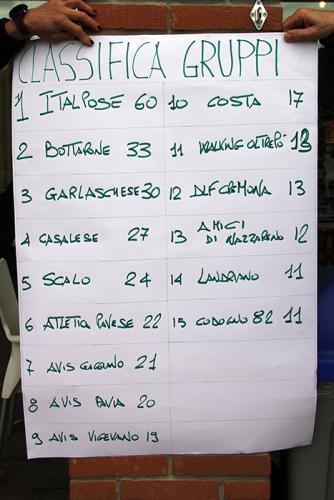 CLASSIFICA GRUPPI
1 ITALPOSE 60
2 BOTTARONE 33
3 GARLASCHESE 30
4 CASALESE 27
5 SCALO 24
6 ATLETICA PAVESE 22
7 AVIS 21
8 AVIS PAVIA 20
9 AVIS VIGEVANO 19
10 COSTA 17
11 WALKING OLTREPÒ 13
12 DLF CREMONA 13
13 AMICI
DI NAZZARENO 12
14 LANDRIANO 11
15 CODOGNO 82 11